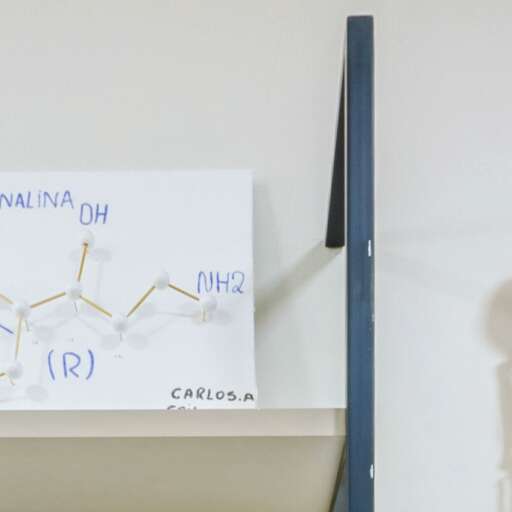 NALINA
OH
NH2
(R)
CARLOS.A